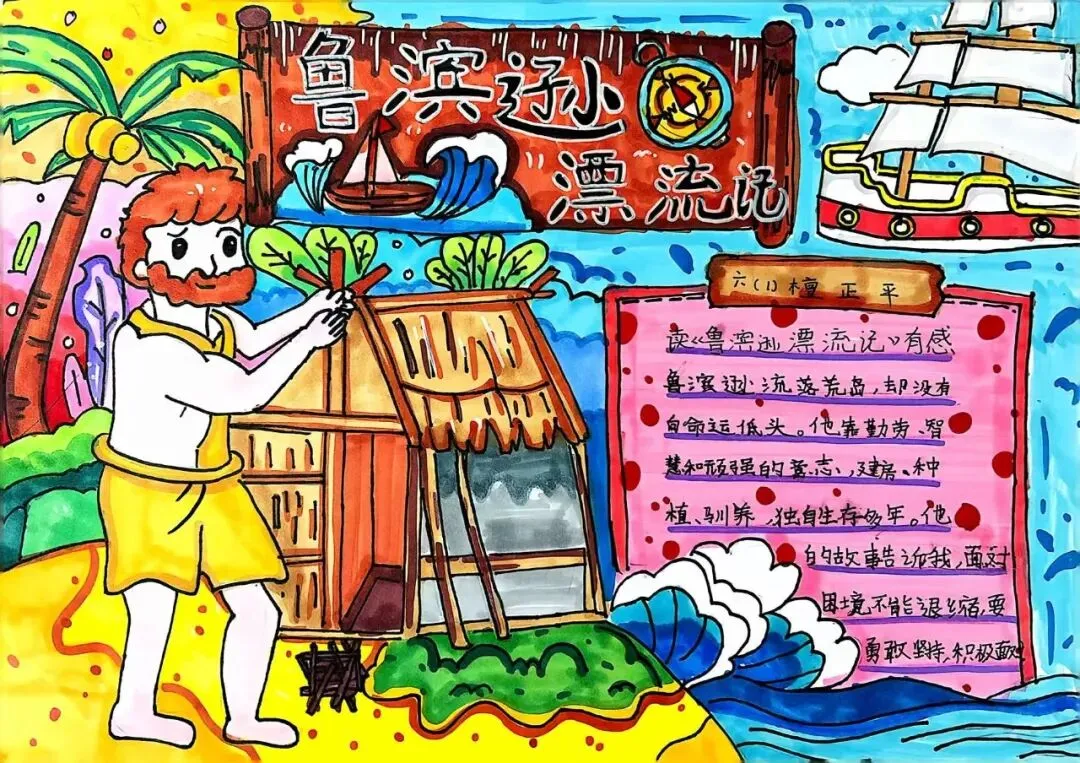 鲁滨逊
漂流记
六(1)檀正平
读《鲁滨逊漂流记》有感
鲁滨逊流落荒岛,却没有
向命运低头。他靠勤劳、智
慧和顽强的意志,建房、种
植、驯养,独自生存多年。他
的故事告诉我,面对
困境不能退缩,要
勇敢坚持,积极面对